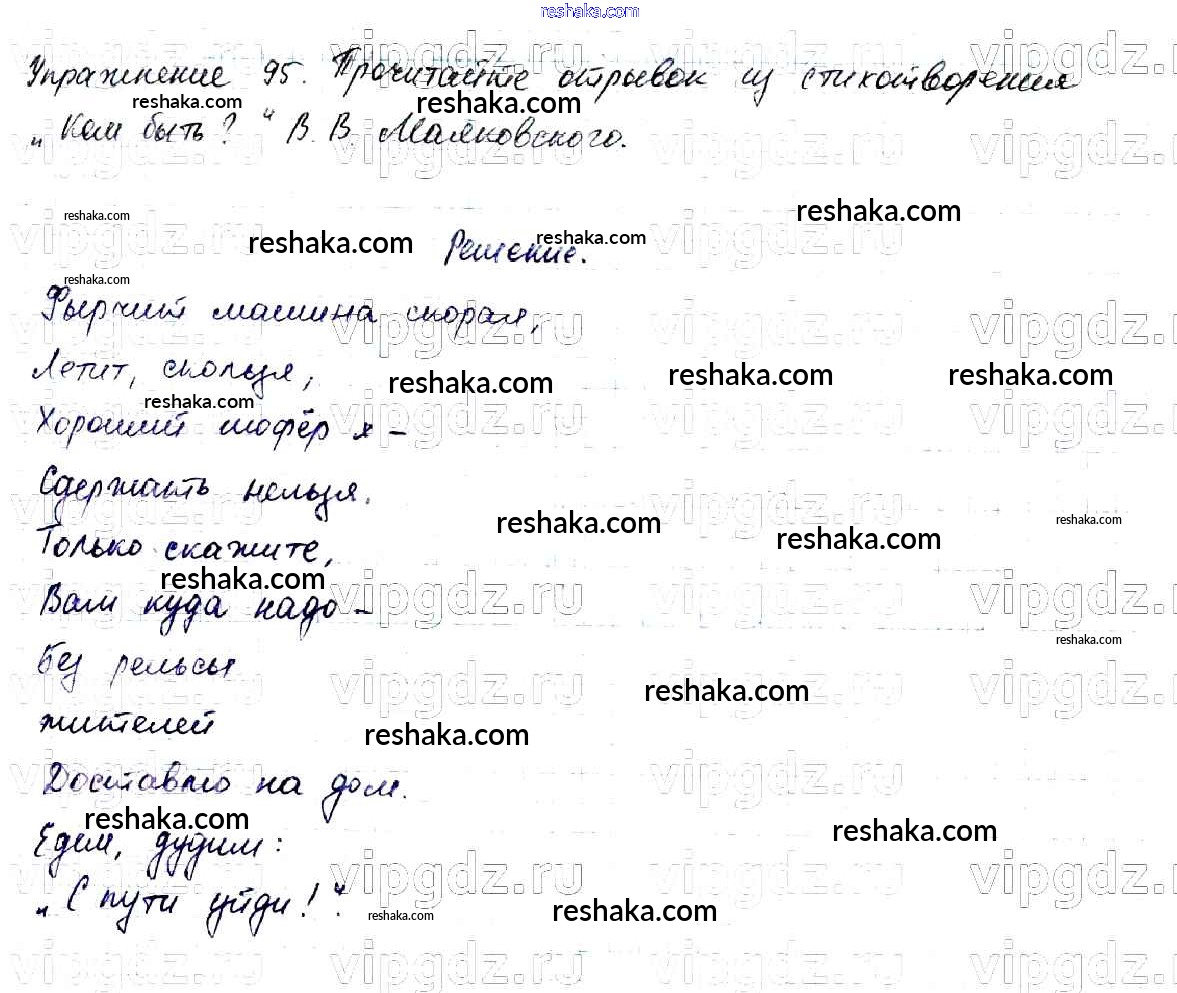 reshaka.com
Упражнение 95. Прочитайте отрывок из стихотворения
„Кем быть?“ В. В. Маяковского.
Решение.
Фырчит машина скорая,
Летит, скользя,
Хороший шофёр я –
Сдержать нельзя.
Только скажите,
Вам куда надо –
без рельсы
жителей
Доставлю на дом.
Едем, дудим:
„С пути уйди!“